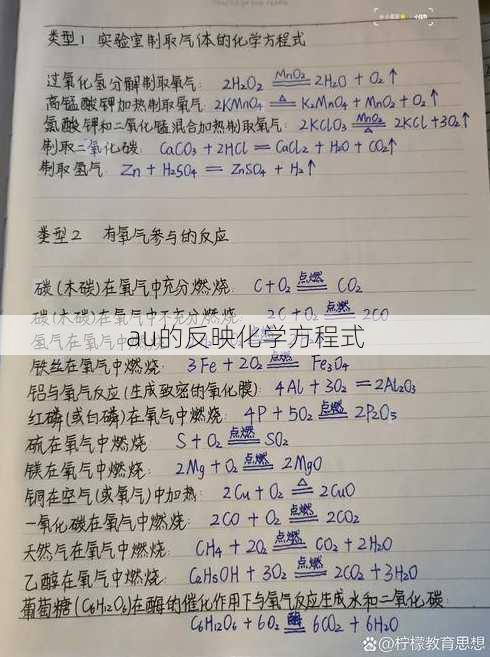 类型1 实验室制取气体的化学方程式
过氧化氢分解制取氧气: 2H₂O₂ MnO₂═ 2H₂O + O₂↑
高锰酸钾加热制取氧气: 2KMnO₄ △═ K₂MnO₄ + MnO₂ + O₂↑
氯酸钾和二氧化锰混合加热制取氧气: 2KClO₃ MnO₂═△ 2KCl+3O₂↑
制取二氧化碳: CaCO₃ + 2HCl ═ CaCl₂ + H₂O + CO₂↑
制取氢气: Zn + H₂SO₄ ═ ZnSO₄ + H₂↑
类型2 有氧气参与的反应
碳(木炭)在氧气中充分燃烧: C+O₂ 点燃═ CO₂
碳(木炭)在氧气中不充分燃烧: 2C+O₂ 点燃═ 2CO
au的反映化学方程式
氢气在氧气中
铁丝在氧气中燃烧: 3Fe + 2O₂ 点燃═ Fe₃O₄
铝与氧气反应(生成致密的氧化膜): 4Al + 3O₂ ═ 2Al₂O₃
红磷(或白磷)在氧气中燃烧: 4P + 5O₂ 点燃═ 2P₂O₅
硫在氧气中燃烧: S + O₂ 点燃═ SO₂
镁在氧气中燃烧: 2Mg + O₂ 点燃═ 2MgO
铜在空气(或氧气)中加热: 2Cu + O₂ △═ 2CuO
一氧化碳在氧气中燃烧: 2CO + O₂ 点燃═ 2CO₂
天然气在氧气中燃烧: CH₄ + 2O₂ 点燃═ CO₂ + 2H₂O
乙醇在氧气中燃烧: C₂H₅OH + 3O₂ 点燃═ 2CO₂ + 3H₂O
葡萄糖(C₆H₁₂O₆)在酶的催化作用下与氧气反应生成水和二氧化碳:
C₆H₁₂O₆ + 6O₂ 酶═ 6CO₂ + 6H₂O
@柠檬教育思想